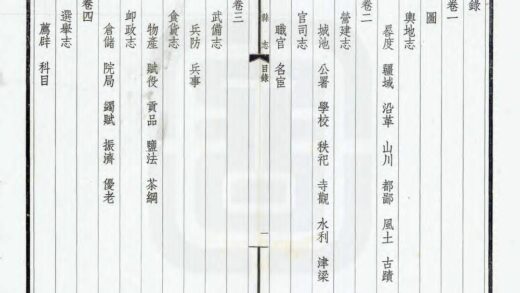 錄
卷一
圖
輿地志
晷度 疆域 沿革 山川 都鄙 風土 古蹟
卷二
營建志
城池 公署 學校 秩祀 寺觀 水利 津梁
官司志
職官 名宦
縣志
目錄
一
卷三
武備志
兵防 兵事
食貨志
物產 賦役 貢品 鹽法 茶綱
卹政志
倉儲 院局 蠲賦 振濟 優老
卷四
選舉志
薦辟 科目